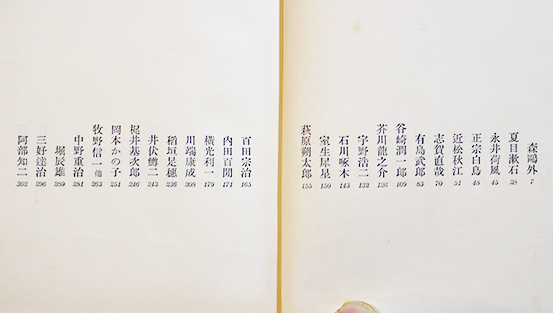 森鷗外 7
夏目漱石 38
永井荷風 45
正宗白鳥 48
近松秋江 51
志賀直哉 70
有島武郎 83
谷崎潤一郎 109
芥川龍之介 126
宇野浩二 132
石川啄木 143
室生犀星 150
萩原朔太郎 155
百田宗治 165
内田百閒 171
横光利一 179
川端康成 208
稲垣足穂 236
井伏鱒二 243
梶井基次郎 246
岡本かの子 251
牧野信一 他 263
中野重治 281
堀辰雄 289
三好達治 296
阿部知二 302